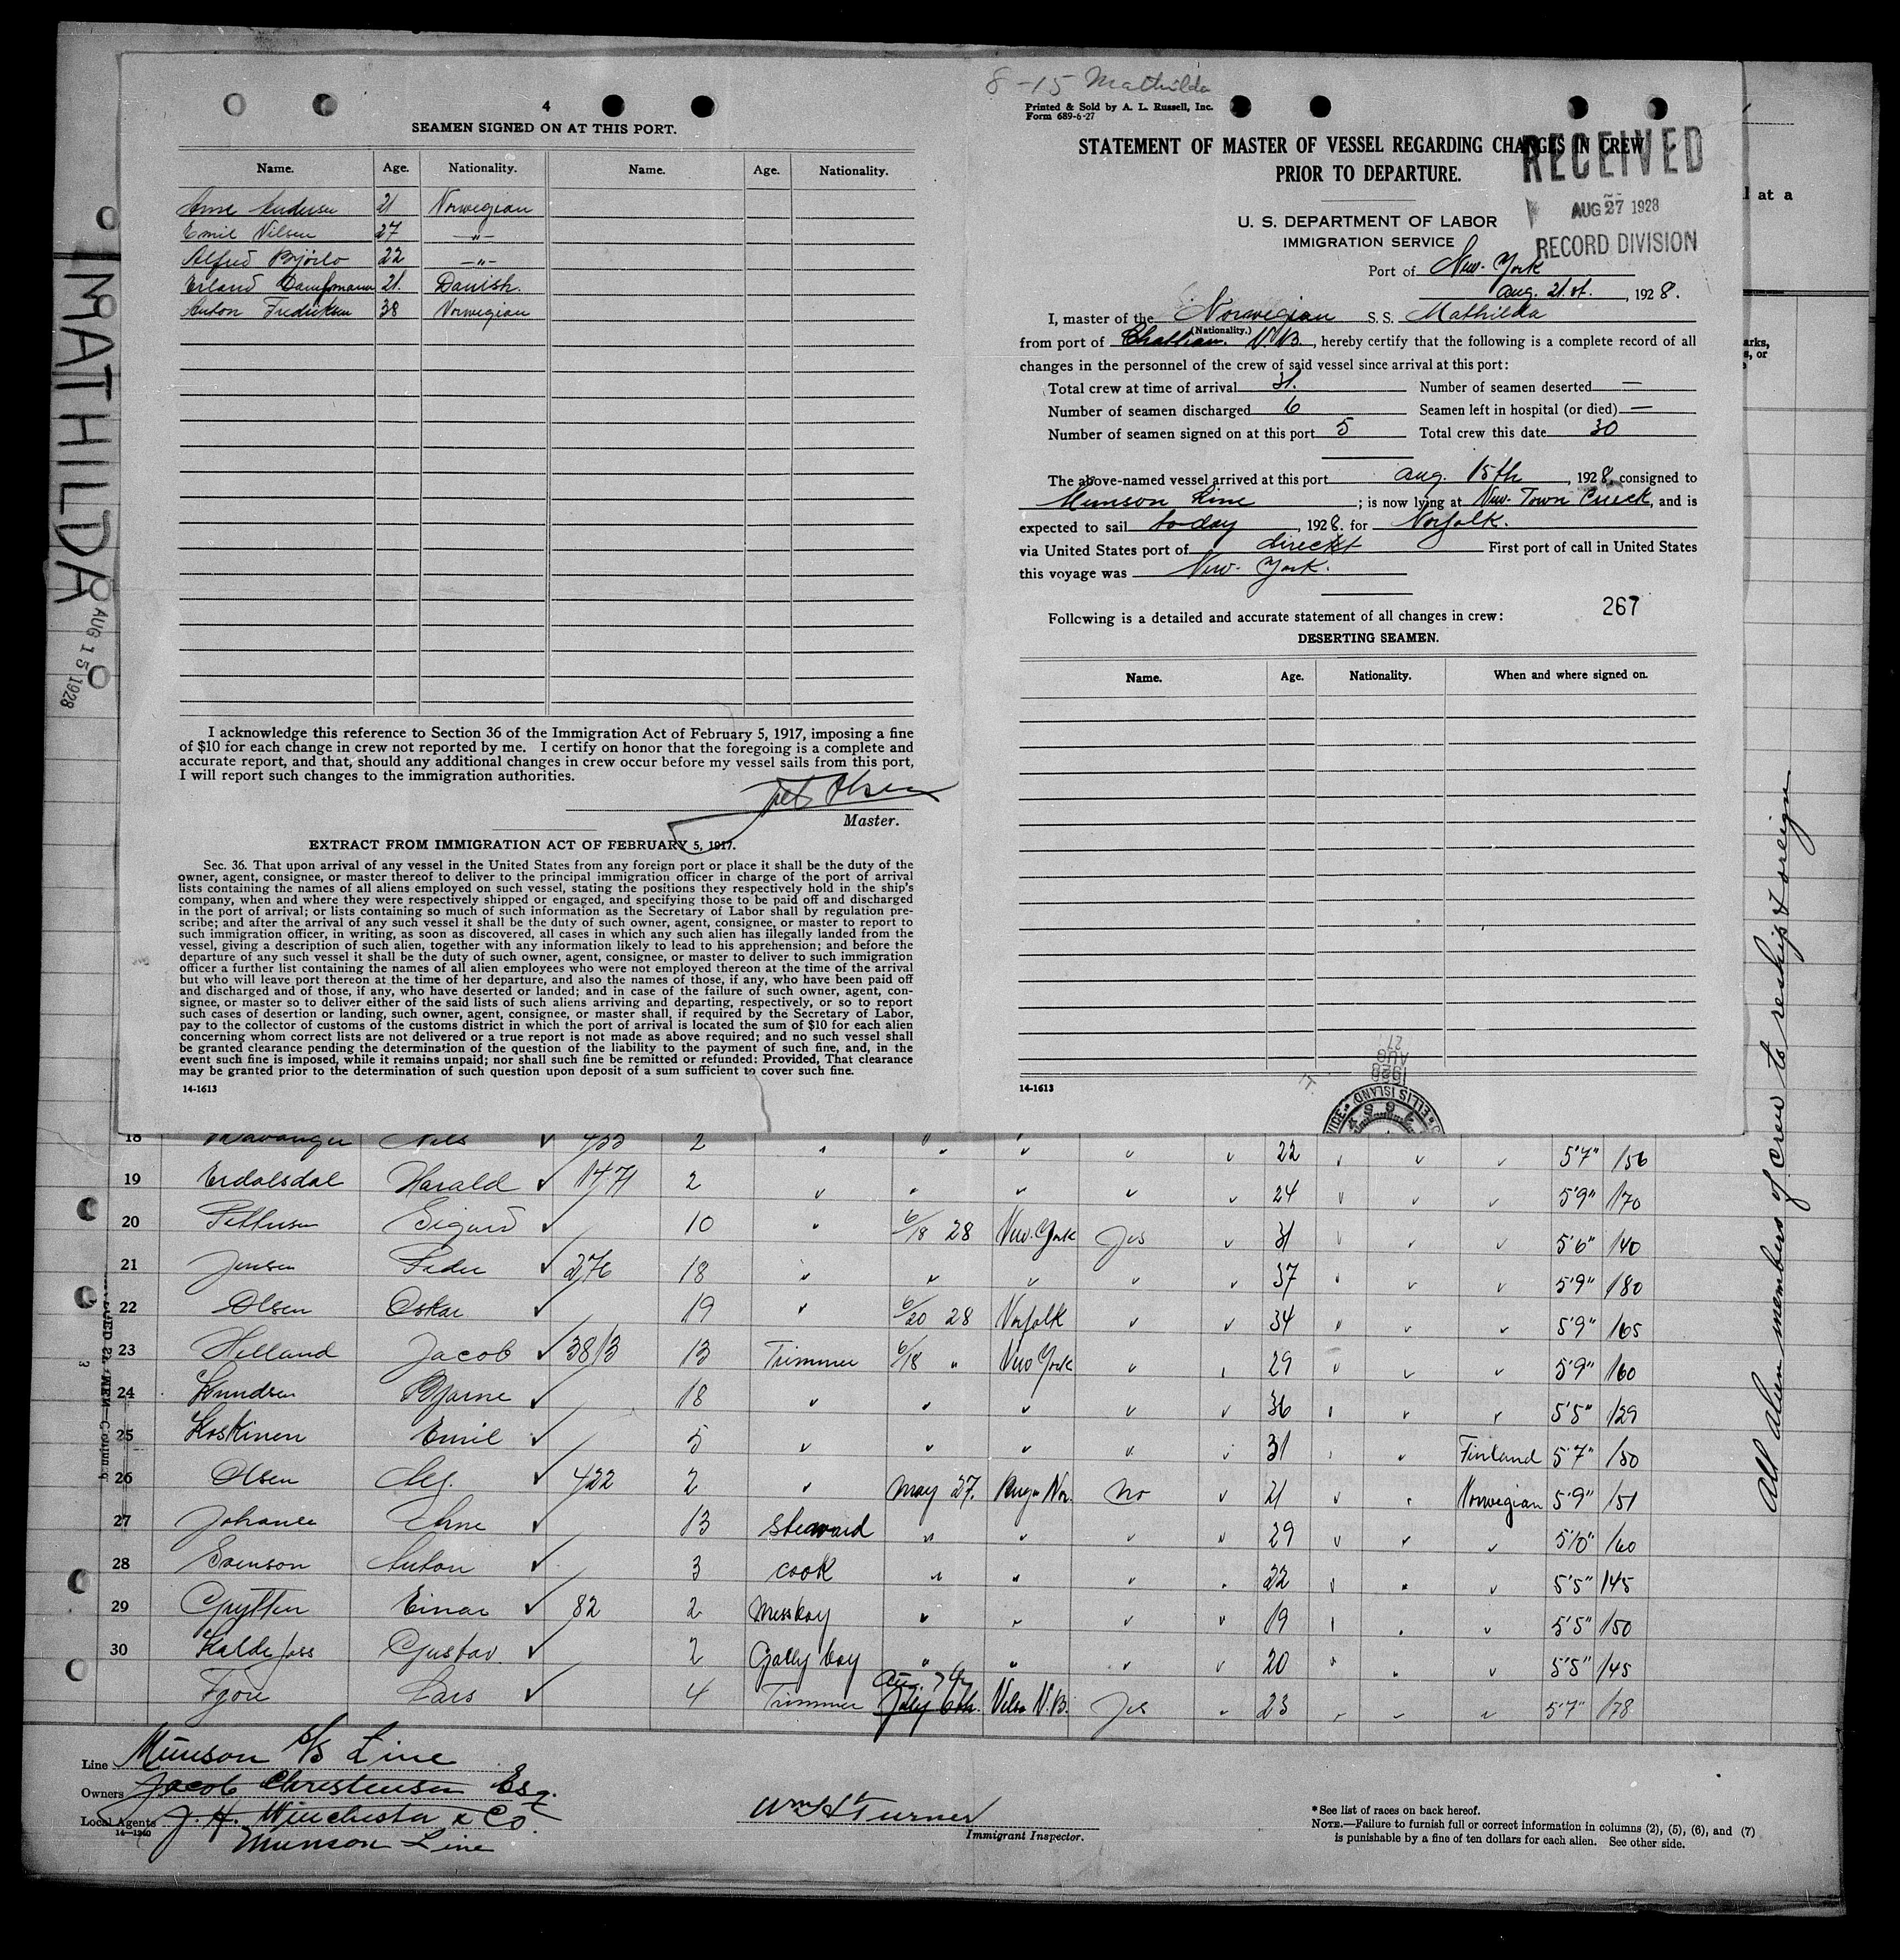 8-15 Mathilda
4
SEAMEN SIGNED ON AT THIS PORT.
Name. Age. Nationality. Name. Age. Nationality.
Arne Andersen 21 Norwegian
Emil Nilsen 27 -"-
Alfred 22 -"-
Erland 21. Danish.
Anton Fredriksen 38 Norwegian
I acknowledge this reference to Section 36 of the Immigration Act of February 5, 1917, imposing a fine
of $10 for each change in crew not reported by me. I certify on honor that the foregoing is a complete and
accurate report, and that, should any additional changes in crew occur before my vessel sails from this port,
I will report such changes to the immigration authorities.
Olsen
Master.
EXTRACT FROM IMMIGRATION ACT OF FEBRUARY 5, 1917.
Sec. 36. That upon arrival of any vessel in the United States from any foreign port or place it shall be the duty of the
owner, agent, consignee, or master thereof to deliver to the principal immigration officer in charge of the port of arrival
lists containing the names of all aliens employed on such vessel, stating the positions they respectively hold in the ship's
company, when and where they were respectively shipped or engaged, and specifying those to be paid off and discharged
in the port of arrival; or lists containing so much of such information as the Secretary of Labor shall by regulation pre-
scribe; and after the arrival of any such vessel it shall be the duty of such owner, agent, consignee, or master to report to
such immigration officer, in writing, as soon as discovered, all cases in which any such alien has illegally landed from the
vessel, giving a description of such alien, together with any information likely to lead to his apprehension; and before the
departure of any such vessel it shall be the duty of such owner, agent, consignee, or master to deliver to such immigration
officer a further list containing the names of all alien employees who were not employed thereon at the time of the arrival
but who will leave port thereon at the time of her departure, and also the names of those, if any, who have been paid off
and discharged and of those, if any, who have deserted or landed; and in case of the failure of such owner, agent, con-
signee, or master so to deliver either of the said lists of such aliens arriving and departing, respectively, or so to report
such cases of desertion or landing, such owner, agent, consignee, or master shall, if required by the Secretary of Labor,
pay to the collector of customs of the customs district in which the port of arrival is located the sum of $10 for each alien
concerning whom correct lists are not delivered or a true report is not made as above required; and no such vessel shall
be granted clearance pending the determination of the question of the liability to the payment of such fine, and, in the
event such fine is imposed, while it remains unpaid; nor shall such fine be remitted or refunded: Provided, That clearance
may be granted prior to the determination of such question upon deposit of a sum sufficient to cover such fine.
14-1613
Printed & Sold by A. L. Russell, Inc.
Form 689-6-27
STATEMENT OF MASTER OF VESSEL REGARDING CHANGES IN CREW
PRIOR TO DEPARTURE.
RECEIVED
AUG 27 1928
RECORD DIVISION
U. S. DEPARTMENT OF LABOR
IMMIGRATION SERVICE
Port of New-York
aug. 21.st., 1928.
I, master of the Norwegian S. S. Mathilda
(Nationality.)
from port of Chatham. N.B., hereby certify that the following is a complete record of all
changes in the personnel of the crew of said vessel since arrival at this port:
Total crew at time of arrival 31. Number of seamen deserted —
Number of seamen discharged 6 Seamen left in hospital (or died) —
Number of seamen signed on at this port 5 Total crew this date 30
The above-named vessel arrived at this port aug. 15th, 1928, consigned to
Munson Line; is now lying at New-Town Creek, and is
expected to sail to-day, 1928. for Norfolk.
via United States port of direckt First port of call in United States
this voyage was New-York.
267
Following is a detailed and accurate statement of all changes in crew:
DESERTING SEAMEN.
Name. Age. Nationality. When and where signed on.
14-1613
AUG 27 1928
ELLIS ISLAND
MATHILDA
AUG 15 1928
l at a
arks,
s, or
All alien members of crew to reship foreign
18 Nils ✓ 2 " " " " " 22 " " " 5'7" 156
19 Erdalsdal Harald ✓ 1471 2 " " " " " 24 " " " 5'9" 170
20 Pettersen Sigurd ✓ 10 " 6/18 28 New-York Yes " 31 " " " 5'6" 140
21 Jensen Peder ✓ 276 18 " " " " " 37 " " " 5'9" 180
22 Olsen Oskar ✓ 19 " 6/20 28 Norfolk " " 34 " " " 5'9" 165
23 Helland Jacob ✓ 3813 13 Trimmer 6/18 " New York " " 29 " " " 5'9" 160
24 Bjarne ✓ 18 " " " " " 36 " " " 5'5" 129
25 Koskinen Emil ✓ 5 " " " " " 31 " " Finland 5'7" 150
26 Olsen Alf. ✓ 422 2 " May 27. Nor. No " 21 " " Norwegian 5'9" 151
27 Arne ✓ 13 Steward " " " " 29 " " " 5'10" 160
28 Svenson Anton ✓ 3 cook " " " " 22 " " " 5'5" 145
29 Grytten Einar ✓ 82 2 Messboy " " " " 19 " " " 5'5" 150
30 Kaldefoss Gustav ✓ 2 Gally boy " " " " 20 " " " 5'5" 145
Lars ✓ 4 Trimmer Aug. 7th July 6th. N.B. Yes " 23 " " " 5'7" 178
Line Munson S/S Line
Owners Jacob Christensen Esq.
Local Agents J. H. Winchester & Co.
14-1240
Munson Line
Wm Turner
Immigrant Inspector.
*See list of races on back hereof.
NOTE.—Failure to furnish full or correct information in columns (2), (5), (6), and (7)
is punishable by a fine of ten dollars for each alien. See other side.